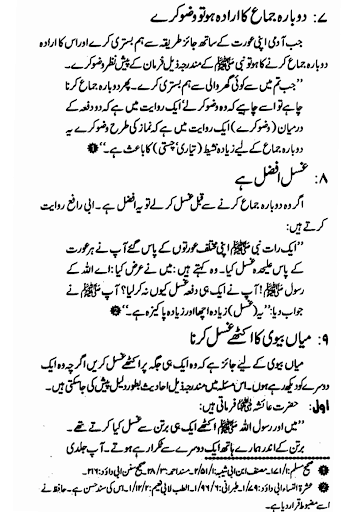 ۷: دوبارہ جماع کا ارادہ ہو تو وضو کرے
جب آدمی اپنی عورت کے ساتھ جائز طریقہ سے ہم بستری کرے اور اس کا ارادہ
دوبارہ جماع کرنے کا ہو تو نبی ﷺ کے مندرجہ ذیل فرمان کے پیش نظر وضو کرے۔
”جب تم میں سے کوئی گھر والی سے ہم بستری کرے۔ پھر دوبارہ جماع کرنا
چاہے تو اسے چاہیے کہ وہ وضو کرلے‘ ایک روایت میں ہے کہ دو دفعہ کے
درمیان (وضو کرے) ایک روایت میں ہے کہ نماز کی طرح وضو کرے یہ
دوبارہ جماع کے لیے زیادہ نشیط (تیاری‘ چستی) کا باعث ہے۔“ ❶
۸: غسل افضل ہے
اگر وہ دوبارہ جماع کرنے سے قبل غسل کرلے تو یہ افضل ہے۔ ابی رافع روایت
کرتے ہیں:
”ایک رات نبی ﷺ اپنی مختلف عورتوں کے پاس گئے آپ نے ہر عورت
کے پاس علیحدہ غسل کیا۔ وہ کہتے ہیں: میں نے عرض کیا: اے اللہ کے
رسول ﷺ! آپ نے ایک ہی دفعہ غسل کیوں نہ کرلیا؟ آپ ﷺ نے
جواب دیا: ”یہ (غسل) زیادہ اچھا اور زیادہ پاکیزہ ہے۔“ ❷
۹: میاں بیوی کا اکٹھے غسل کرنا
میاں بیوی کے لیے جائز ہے کہ وہ ایک ہی جگہ پر اکٹھے غسل کریں اگرچہ وہ ایک
دوسرے کو دیکھ رہے ہوں۔ اس مسئلہ میں مندرجہ ذیل احادیث بطور دلیل پیش کی جاسکتی ہیں۔
اول: حضرت عائشہ فرماتی ہیں:
”میں اور رسول اللہ ﷺ اکٹھے ایک ہی برتن سے غسل کیا کرتے تھے۔
برتن کے اندر ہمارے ہاتھ ایک دوسرے سے ٹکرا رہے ہوتے۔ آپ جلدی
❶ صحیح مسلم: ۱/۱۷۱۔ مصنف ابن ابی شیبہ: ۱/۵۱/۲۔ مسند احمد: ۳/۲۸۔ صحیح سنن ابی داؤد: ۲۱۶۔
❷ عشرة النساء ابی داؤد: ۱/۷۹۔ طبرانی: ۶/۹۶/۱۔ الطب لابی نعیم: ۲/۱۲/۱۔ اس کی سند حسن ہے۔ حافظ نے
اسے مضبوط قرار دیا ہے۔